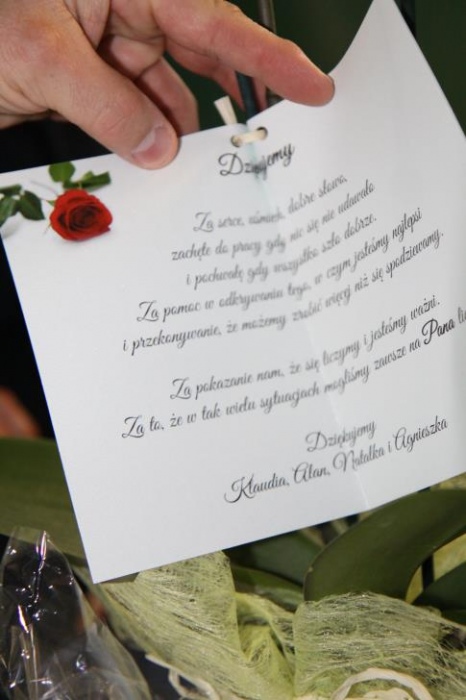 Dziękujemy
Za serce, uśmiech, dobre słowo,
zachętę do pracy gdy nic się nie udawało
i pochwałę gdy wszystko szło dobrze.
Za pomoc w odkrywaniu tego, w czym jesteśmy najlepsi
i przekonywanie, że możemy zrobić więcej niż się spodziewamy.
Za pokazanie nam, że się liczymy i jesteśmy ważni.
Za to, że w tak wielu sytuacjach mogliśmy zawsze na Pana
Dziękujemy
Klaudia, Alan, Natalka i Agnieszka